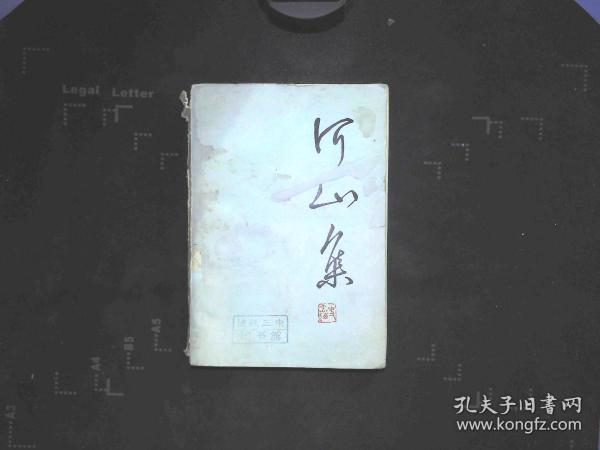 Legal Letter
河山集
三中
书馆
A5
B5
A4
A3
孔夫子旧書网
www.kongfz.com